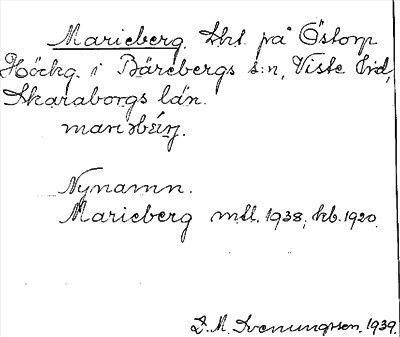 Marieberg. Lht. på Östorp
Höckg. i Bärebergs s:n, Viste hd,
Skaraborgs län.
Nynamn.
Marieberg mtl. 1938, kb. 1920
D. M. Svenungsson. 1939.